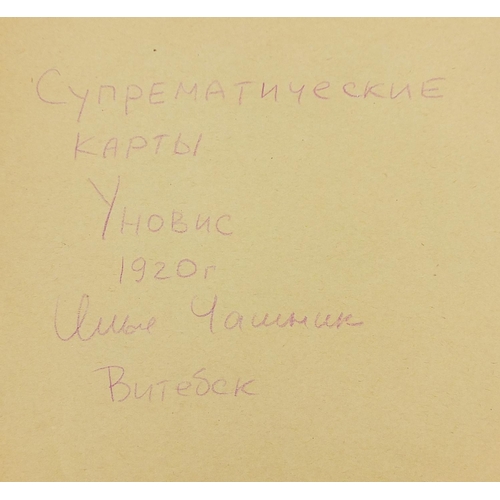 Супрематические
карты
Уновис
1920г
Илья Чашник
Витебск